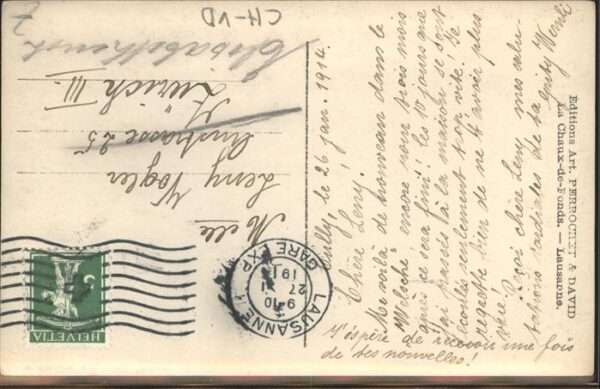 CH-VD
Mlle
Leny Vogler
25
Zürich III.
Elisabethenstr
7
HELVETIA
5
LAUSANNE 1
GARE EXP.
27 I
9-10
le 26 jan. 1914.
Chère Leny!
Me voilà de nouveau dans le
encore trois mois
après ce sera fini! les 10 jours que
j'ai passés à la maison se sont
écoulés seulement trop vite! Je
regrette bien de ne t'avoir plus
vue!
Reçoi chère Leny mes salu-
tations cordiales de ta
J'espère de recevoir une fois
de tes nouvelles!
Editions Art. PERROCHET & DAVID
La Chaux-de-Fonds. — Lausanne.